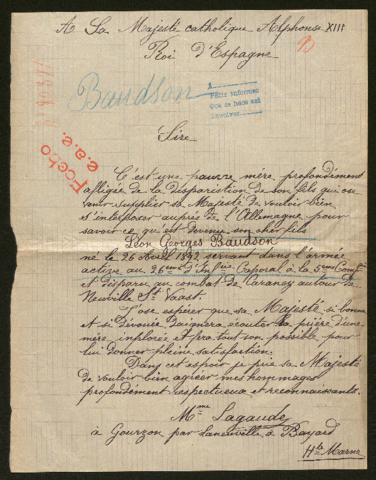 A Sa Majesté catholique Alphonse XIII
Roi d'Espagne
Baudson
Sire
C'est une pauvre mère profondément
affligée de la disparition de son fils qui ose
venir supplier sa Majesté de vouloir bien
s'interposer auprès de l'Allemagne pour
savoir ce qu'est devenu son cher fils
Léon Georges Baudson
né le 26 Avril 1892 servant dans l'armée
active au 26ème d'Infrie Caporal à la 5ème Compie
et disparu au combat de Carancy autour de
Neuville St Vaast.
J'ose espérer que sa Majesté si bonne
et si dévouée daignera écouter la prière d'une
mère implorée et fera tout son possible pour
lui donner pleine satisfaction.
Dans cet espoir je prie sa Majesté
de vouloir bien agréer mes hommages
profondément respectueux et reconnaissants.
Mme Lagaude
à Gourzon par Laneuville à Bayard
Hte Marne